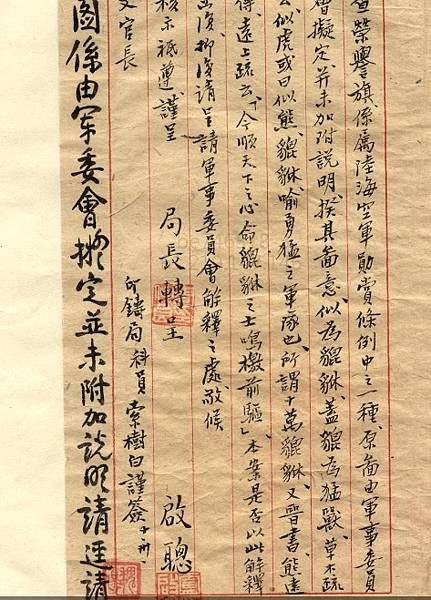 查榮譽旗係屬陸海空軍勛賞條例中之一種、原啚由軍事委員
會擬定并未加附說明、揆其啚意似為貔貅、蓋貔為猛獸、草木疏
云似虎或曰似熊、貔貅喻勇猛之軍隊也、所謂十萬貔貅、又晉書熊遠
傳、遠上疏云、「今順天下之心命貔貅之士鳴檄前驅」、本案是否以此解釋
函復、抑復請呈請軍事委員會解釋之處、敬候
核示祗遵、謹呈
局長轉呈
文官長
印鑄局科員索樹白謹簽
啟聰
圖係由軍委會擬定並未附加說明請逕請